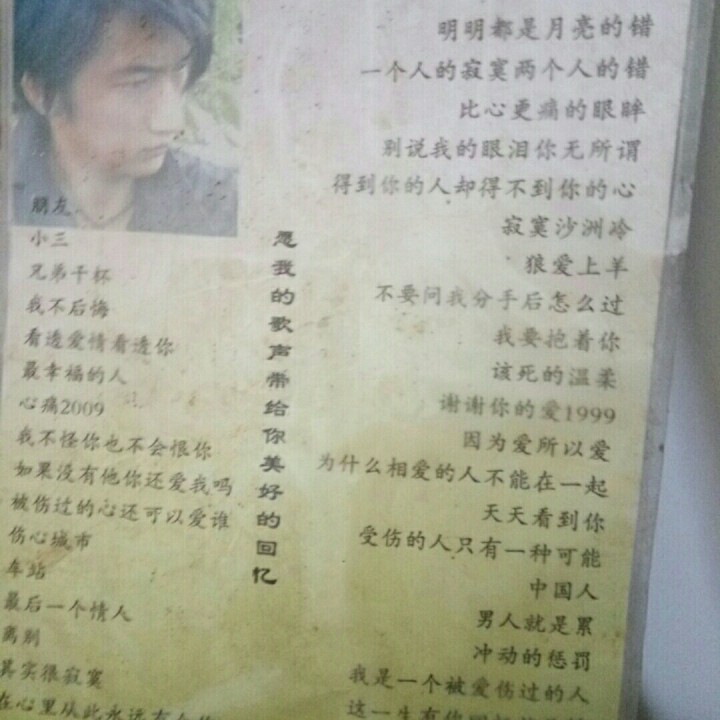 朋友
小三
兄弟干杯
我不后悔
看透爱情看透你
最幸福的人
心痛2009
我不怪你也不会恨你
如果没有他你还爱我吗
被伤过的心还可以爱谁
伤心城市
车站
最后一个情人
离别
其实很寂寞
在心里从此永远有
愿我的歌声带给你美好的回忆
明明都是月亮的错
一个人的寂寞两个人的错
比心更痛的眼眸
别说我的眼泪你无所谓
得到你的人却得不到你的心
寂寞沙洲冷
狼爱上羊
不要问我分手后怎么过
我要抱着你
该死的温柔
谢谢你的爱1999
因为爱所以爱
为什么相爱的人不能在一起
天天看到你
受伤的人只有一种可能
中国人
男人就是累
冲动的惩罚
我是一个被爱伤过的人
这一生有你